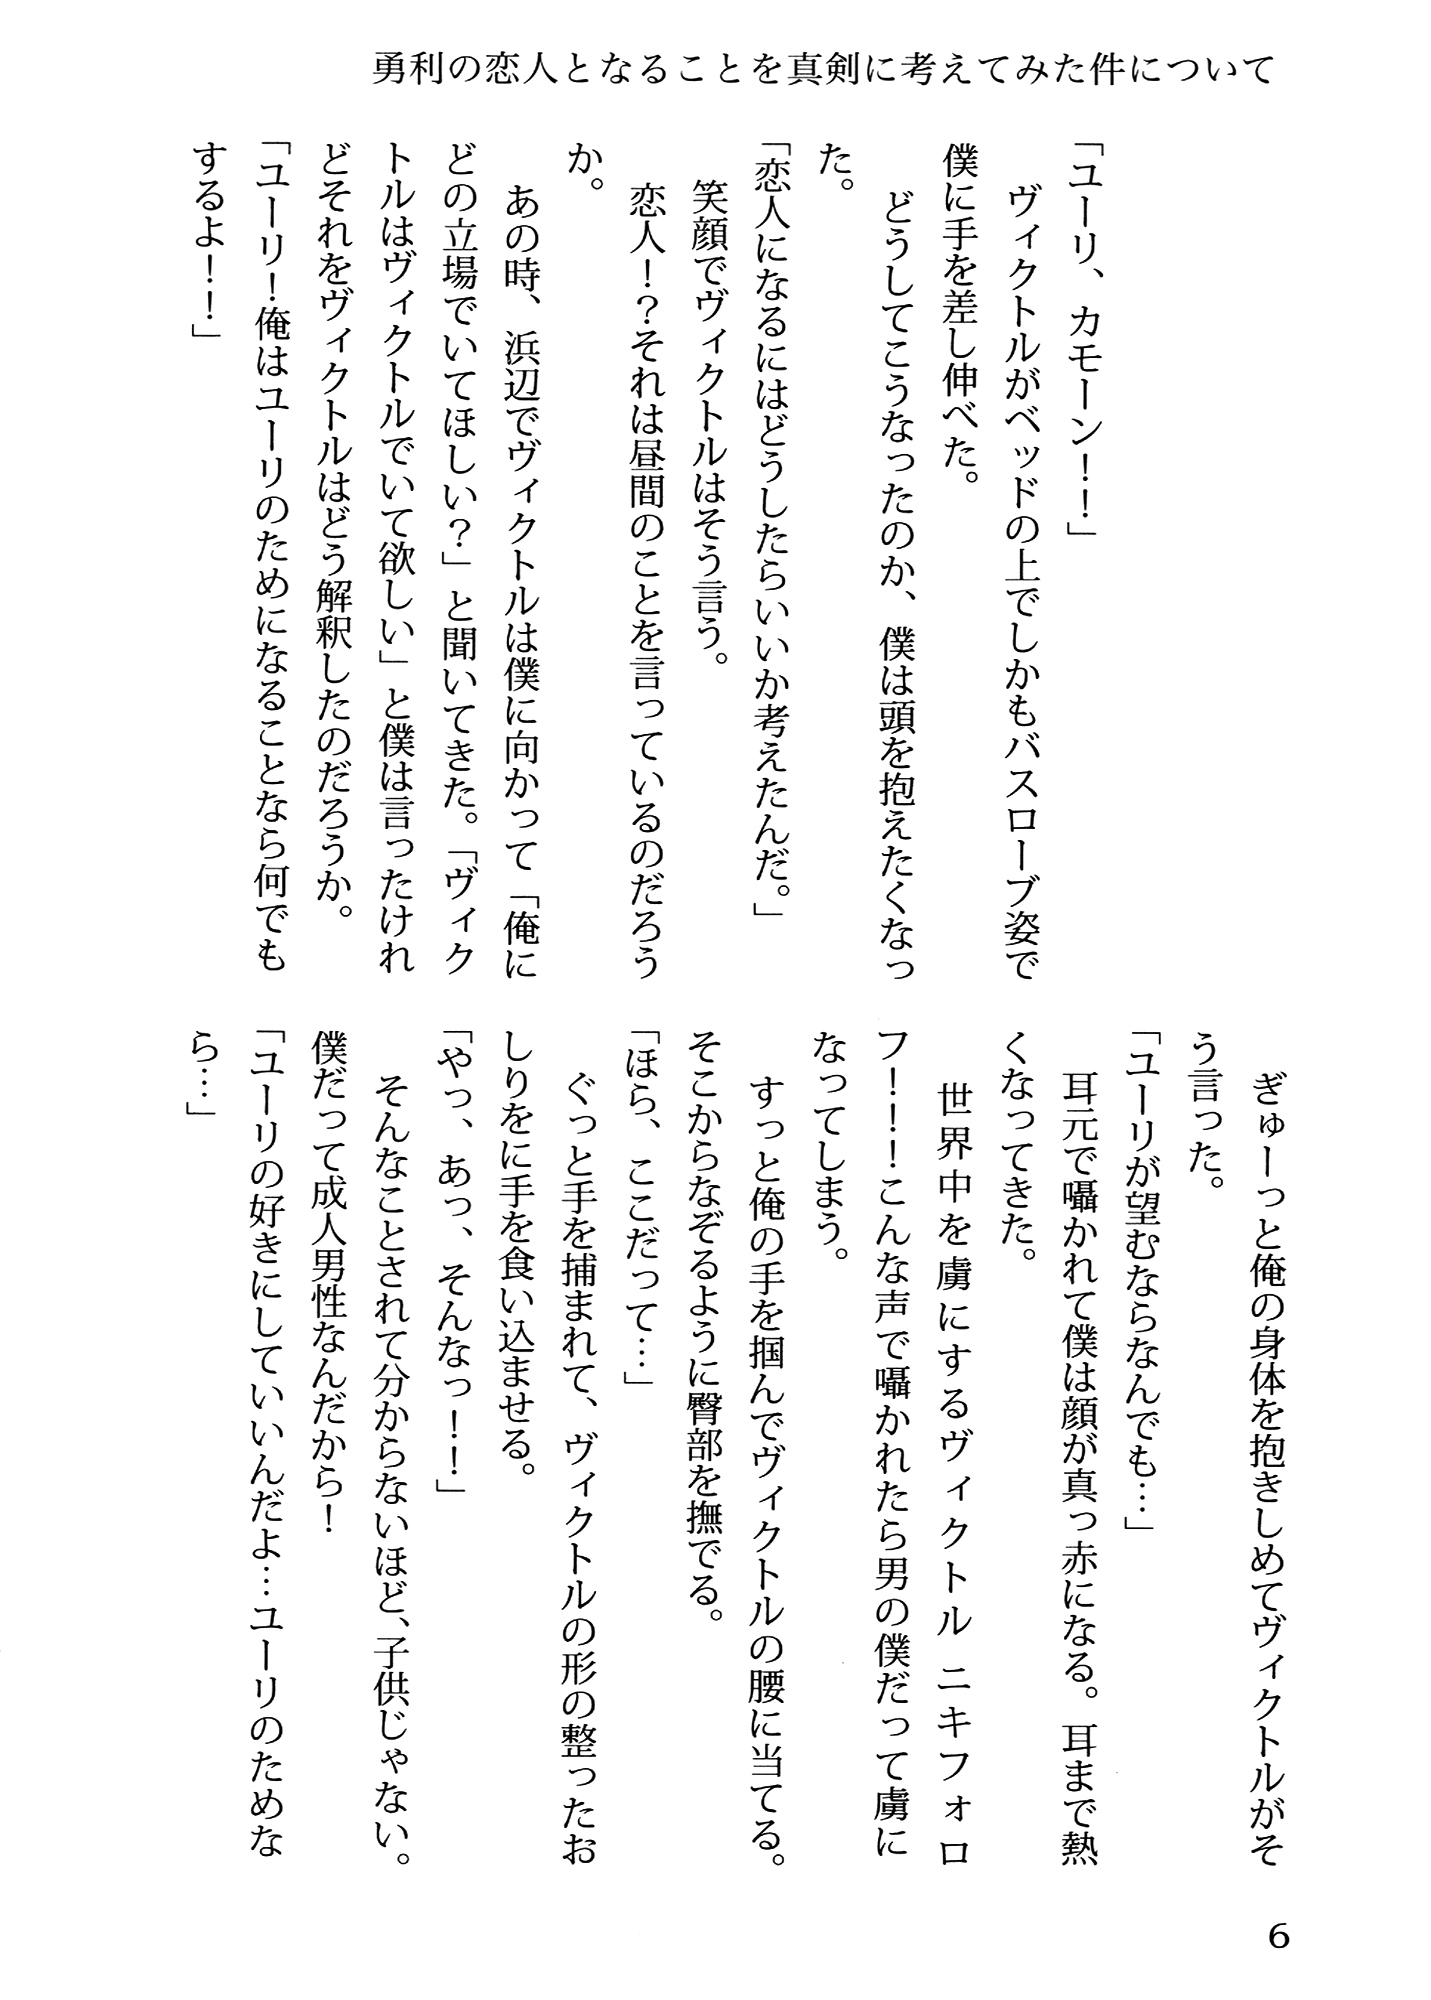 勇利の恋人となることを真剣に考えてみた件について
「ユーリ、カモーン！！」
ヴィクトルがベッドの上でしかもバスローブ姿で
僕に手を差し伸べた。
どうしてこうなったのか、僕は頭を抱えたくなっ
た。
「恋人になるにはどうしたらいいか考えたんだ。」
笑顔でヴィクトルはそう言う。
恋人！？それは昼間のことを言っているのだろう
か。
あの時、浜辺でヴィクトルは僕に向かって「俺に
どの立場でいてほしい？」と聞いてきた。「ヴィク
トルはヴィクトルでいて欲しい」と僕は言ったけれ
どそれをヴィクトルはどう解釈したのだろうか。
「ユーリ！俺はユーリのためになることなら何でも
するよ！！」
ぎゅーっと俺の身体を抱きしめてヴィクトルがそ
う言った。
「ユーリが望むならなんでも…」
耳元で囁かれて僕は顔が真っ赤になる。耳まで熱
くなってきた。
世界中を虜にするヴィクトル ニキフォロ
フ！！！こんな声で囁かれたら男の僕だって虜に
なってしまう。
すっと俺の手を掴んでヴィクトルの腰に当てる。
そこからなぞるように臀部を撫でる。
「ほら、ここだって…」
ぐっと手を捕まれて、ヴィクトルの形の整ったお
しりをに手を食い込ませる。
「やっ、あっ、そんなっ！！」
そんなことされて分からないほど、子供じゃない。
僕だって成人男性なんだから！
「ユーリの好きにしていいんだよ…ユーリのためな
ら…」
6